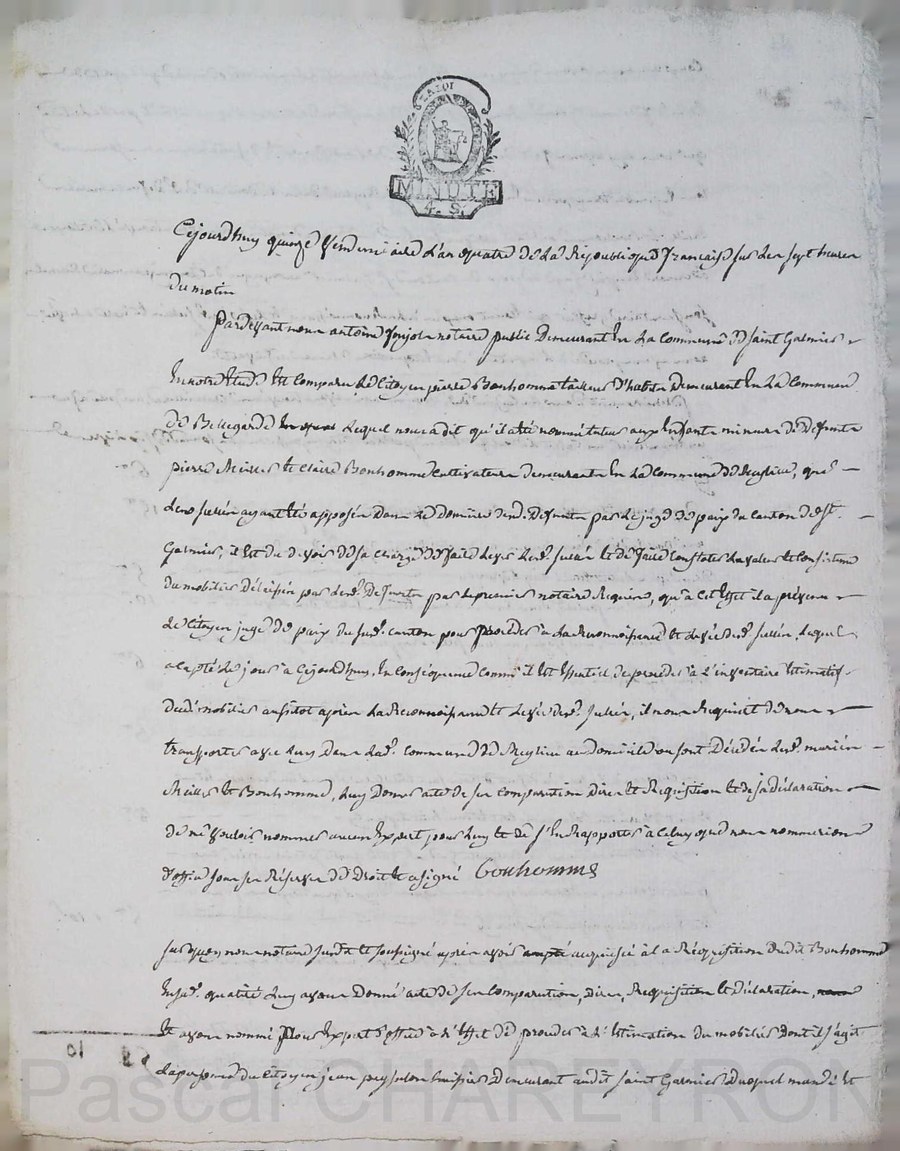 LA LOI
MINUTE
4. S.
Cejourdhuy quinze Vendemiaire L'an quatre de La Republique francaise sur Les sept heures
du matin
Pardevant nous antoine notaire public Demeurant En La Commune de saint Galmier
En notre Etude Est Comparu Le Citoyen pierre Bonhomme tailleur D'habits Demeurant En La Commune
de Bellegarde Lequel nous a dit qu'il a été nommé tuteur aux Enfants mineurs de Defunts
pierre et claire Bonhomme Cultivateurs demeurants En La Commune de que
Les scellés ayant Eté apposés Dans Le Domicile desd. Defunts par Le juge de paix du canton de St.
Galmier, il Est du devoir de sa charge de faire Lever Lesd. scellés et de faire Constater La valeur et Consistance
du mobilier Délaissé par Lesd. Defunts par Le premier notaire Requis, qu'a Cet Effet il a prévenu
Le Citoyen juge de paix du susd. canton pour proceder a La Reconnoissance et Levée desd. scellés, Lequel
a accepté Le jour a Cejourdhuy, En Conséquence Comme il Est Essentiel de proceder à L'inventaire Estimatif
dudit mobilier aussitot après La Reconnoissance et Levée desd. scellés, il nous Requiert de nous
transporter avec Luy Dans Lad. Commune de au domicile ou sont Décédés Lesd. mariés
et Bonhomme, Luy Donner acte de ses Comparution Dires et Requisition et de sa déclaration
de ne vouloir nommer aucun Expert pour Luy et de s'En Rapporter a Celuy que nous nommerions
d'office sous ses Réserves de Droit et a signé Bonhomme
sur quoy nous notaire susdit et soussigné après avoir acquiescé a La Requisition dudit Bonhomme
En sad. qualité Luy avons Donné acte de ses Comparution, dires, Requisition et déclaration,
Et avons nommé pour Expert d'office à L'Effet de proceder à L'Estimation du mobilier Dont il s'agit
La personne du Citoyen jean huissier Demeurant audit Saint Galmier Duquel mandé et
Pascal CHAREYRON